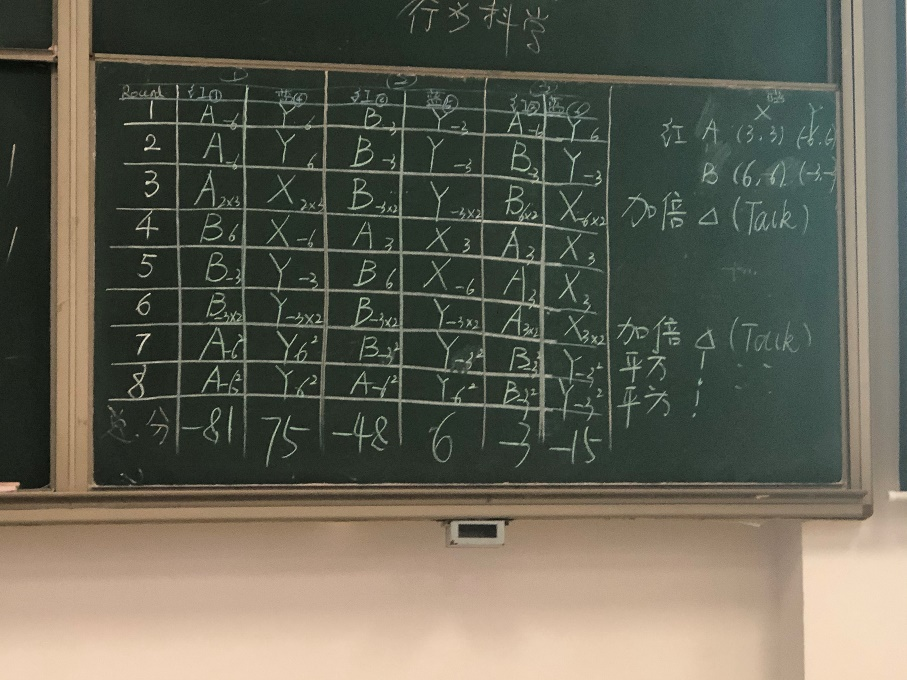 行为科学
① ② ③
Round 红① 蓝④ 红② 蓝⑤ 红③ 蓝⑥
1 A-6 Y6 B-3 Y-3 A-6 Y6
2 A-6 Y6 B-3 Y-3 B-3 Y-3
3 A3×2 X3×2 B-3×2 Y-3×2 B6×2 X-6×2
4 B6 X-6 A3 X3 A3 X3
5 B-3 Y-3 B6 X-6 A3 X3
6 B-3×2 Y-3×2 B-3×2 Y-3×2 A3×2 X3×2
7 A-6² Y6² B-3² Y-3² B-3² Y-3²
8 A-6² Y6² A-6² Y6² B-3² Y-3²
总分 -81 75 -48 6 -3 -15
蓝
X Y
红 A (3,3) (-6,6)
B (6,-6) (-3,-
加倍 △ (Talk)
加倍 △ (Talk)
平方 !
平方 !